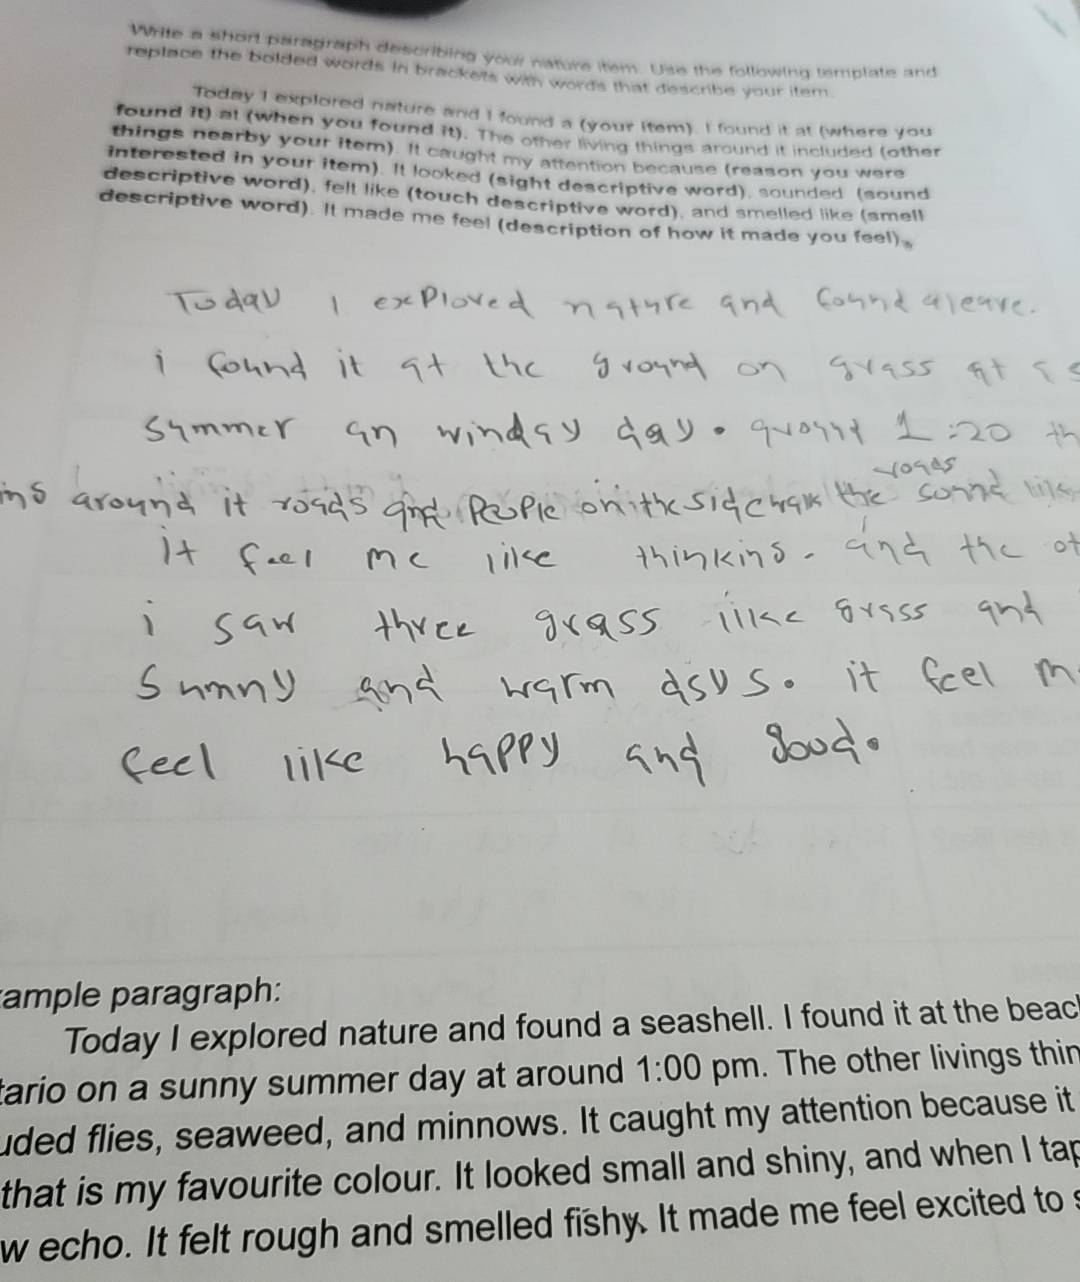 Write a short paragraph describing your nature item. Use the following template and
replace the bolded words in brackets with words that describe your item.
Today I explored nature and I found a (your item). I found it at (where you
found it) at (when you found it). The other living things around it included (other
things nearby your item). It caught my attention because (reason you were
interested in your item). It looked (sight descriptive word), sounded (sound
descriptive word), felt like (touch descriptive word), and smelled like (smell
descriptive word). It made me feel (description of how it made you feel).
Today I explored nature and found a leave.
i found it at the ground on grass at
summer an winday day. around 1:20 th
around it roads and People on the sidewalk the roads sound like
it feel me like thinking. and the ot
i saw three grass like grass and
Sunny and warm days. it feel m
feel like happy and good.
ample paragraph:
Today I explored nature and found a seashell. I found it at the beac
tario on a sunny summer day at around 1:00 pm. The other livings thin
uded flies, seaweed, and minnows. It caught my attention because it
that is my favourite colour. It looked small and shiny, and when I tap
w echo. It felt rough and smelled fishy. It made me feel excited to s